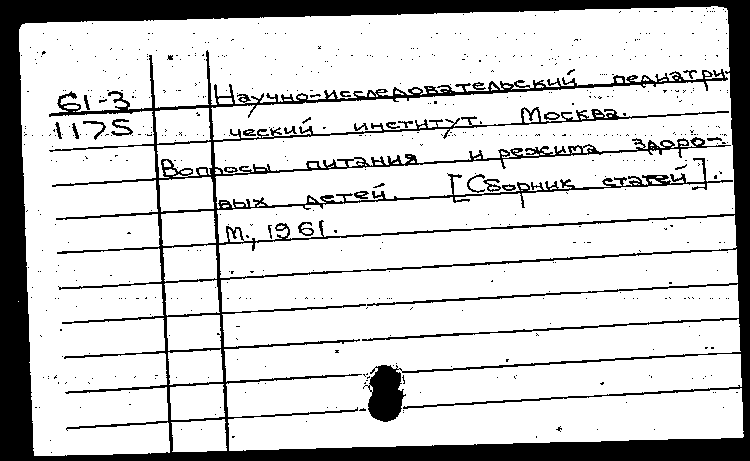 61-3 Научно-исследовательский педиатри-
1175 ческий институт. Москва.
Вопросы питания и режима здоро-
вых детей. [Сборник статей].
М., 1961.